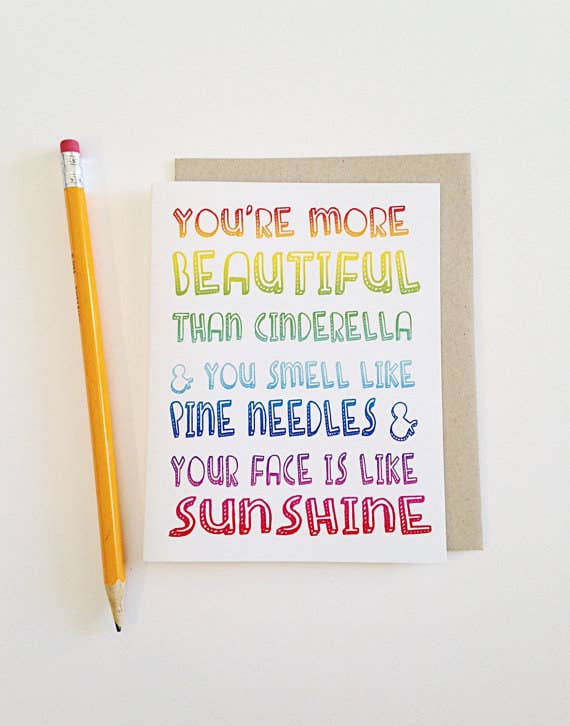 YOU'RE MORE
BEAUTIFUL
THAN CINDERELLA
& YOU SMELL LIKE
PINE NEEDLES &
YOUR FACE IS LIKE
SUNSHINE